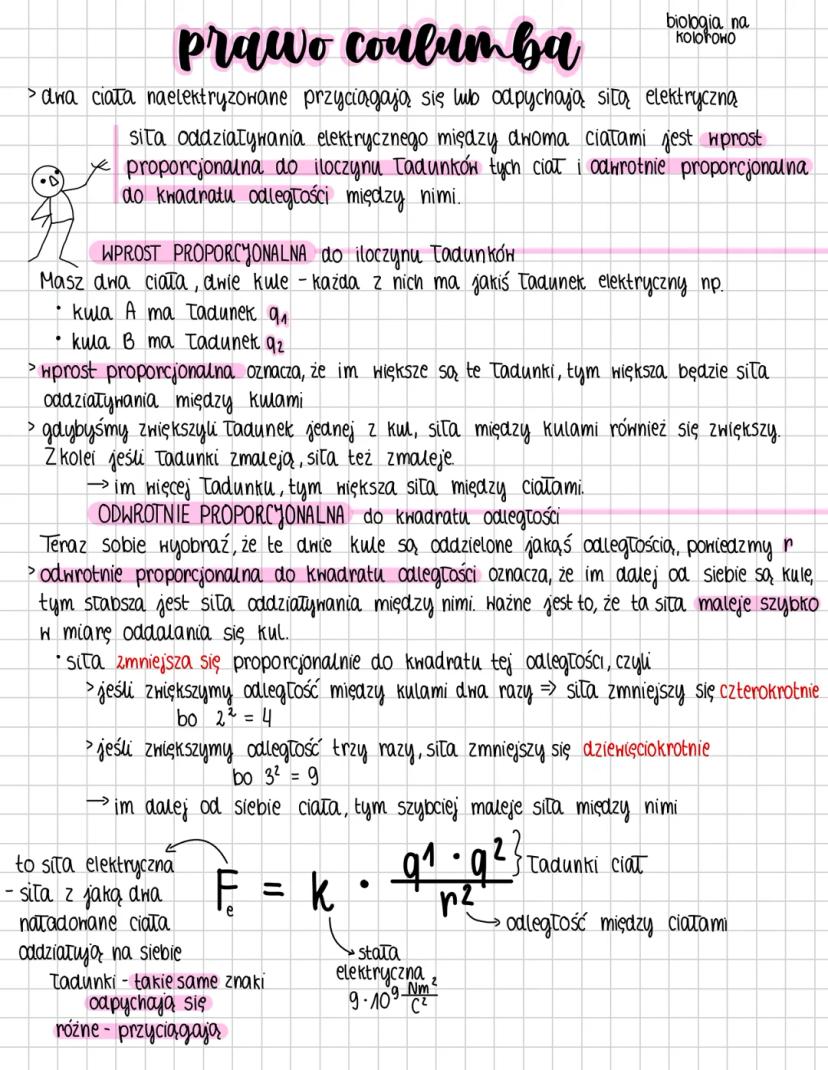 biologia na
kolorowo
prawo coulumba
> dwa ciała naelektryzowane przyciągają się lub odpychają siłą elektryczną
siła oddziaływania elektrycznego między dwoma ciałami jest wprost
proporcjonalna do iloczynu ładunków tych ciał i odwrotnie proporcjonalna
do kwadratu odległości między nimi.
WPROST PROPORCJONALNA do iloczynu ładunków
Masz dwa ciała, dwie kule - każda z nich ma jakiś ładunek elektryczny np.
• kula A ma ładunek q₁
• kula B ma ładunek q₂
> wprost proporcjonalna oznacza, że im większe są te ładunki, tym większa będzie siła
oddziaływania między kulami
> gdybyśmy zwiększyli ładunek jednej z kul, siła między kulami również się zwiększy.
Z kolei jeśli ładunki zmaleją, siła też zmaleje.
→ im więcej ładunku, tym większa siła między ciałami.
ODWROTNIE PROPORCJONALNA do kwadratu odległości
Teraz sobie wyobraź, że te dwie kule są oddzielone jakąś odległością, powiedzmy r
> odwrotnie proporcjonalna do kwadratu odległości oznacza, że im dalej od siebie są kule,
tym słabsza jest siła oddziaływania między nimi. Ważne jest to, że ta siła maleje szybko
w miarę oddalania się kul.
• siła zmniejsza się proporcjonalnie do kwadratu tej odległości, czyli
> jeśli zwiększymy odległość między kulami dwa razy ⇒ siła zmniejszy się czterokrotnie
bo 2² = 4
> jeśli zwiększymy odległość trzy razy, siła zmniejszy się dziewięciokrotnie
bo 3² = 9
→ im dalej od siebie ciała, tym szybciej maleje siła między nimi
to siła elektryczna
- siła z jaką dwa
naładowane ciała
oddziałują na siebie
Fₑ = k · q1 · q2 / r²
} ładunki ciał
→ odległość między ciałami
stała
elektryczna
9·10⁹ Nm²/C²
ładunki - takie same znaki
odpychają się
różne - przyciągają